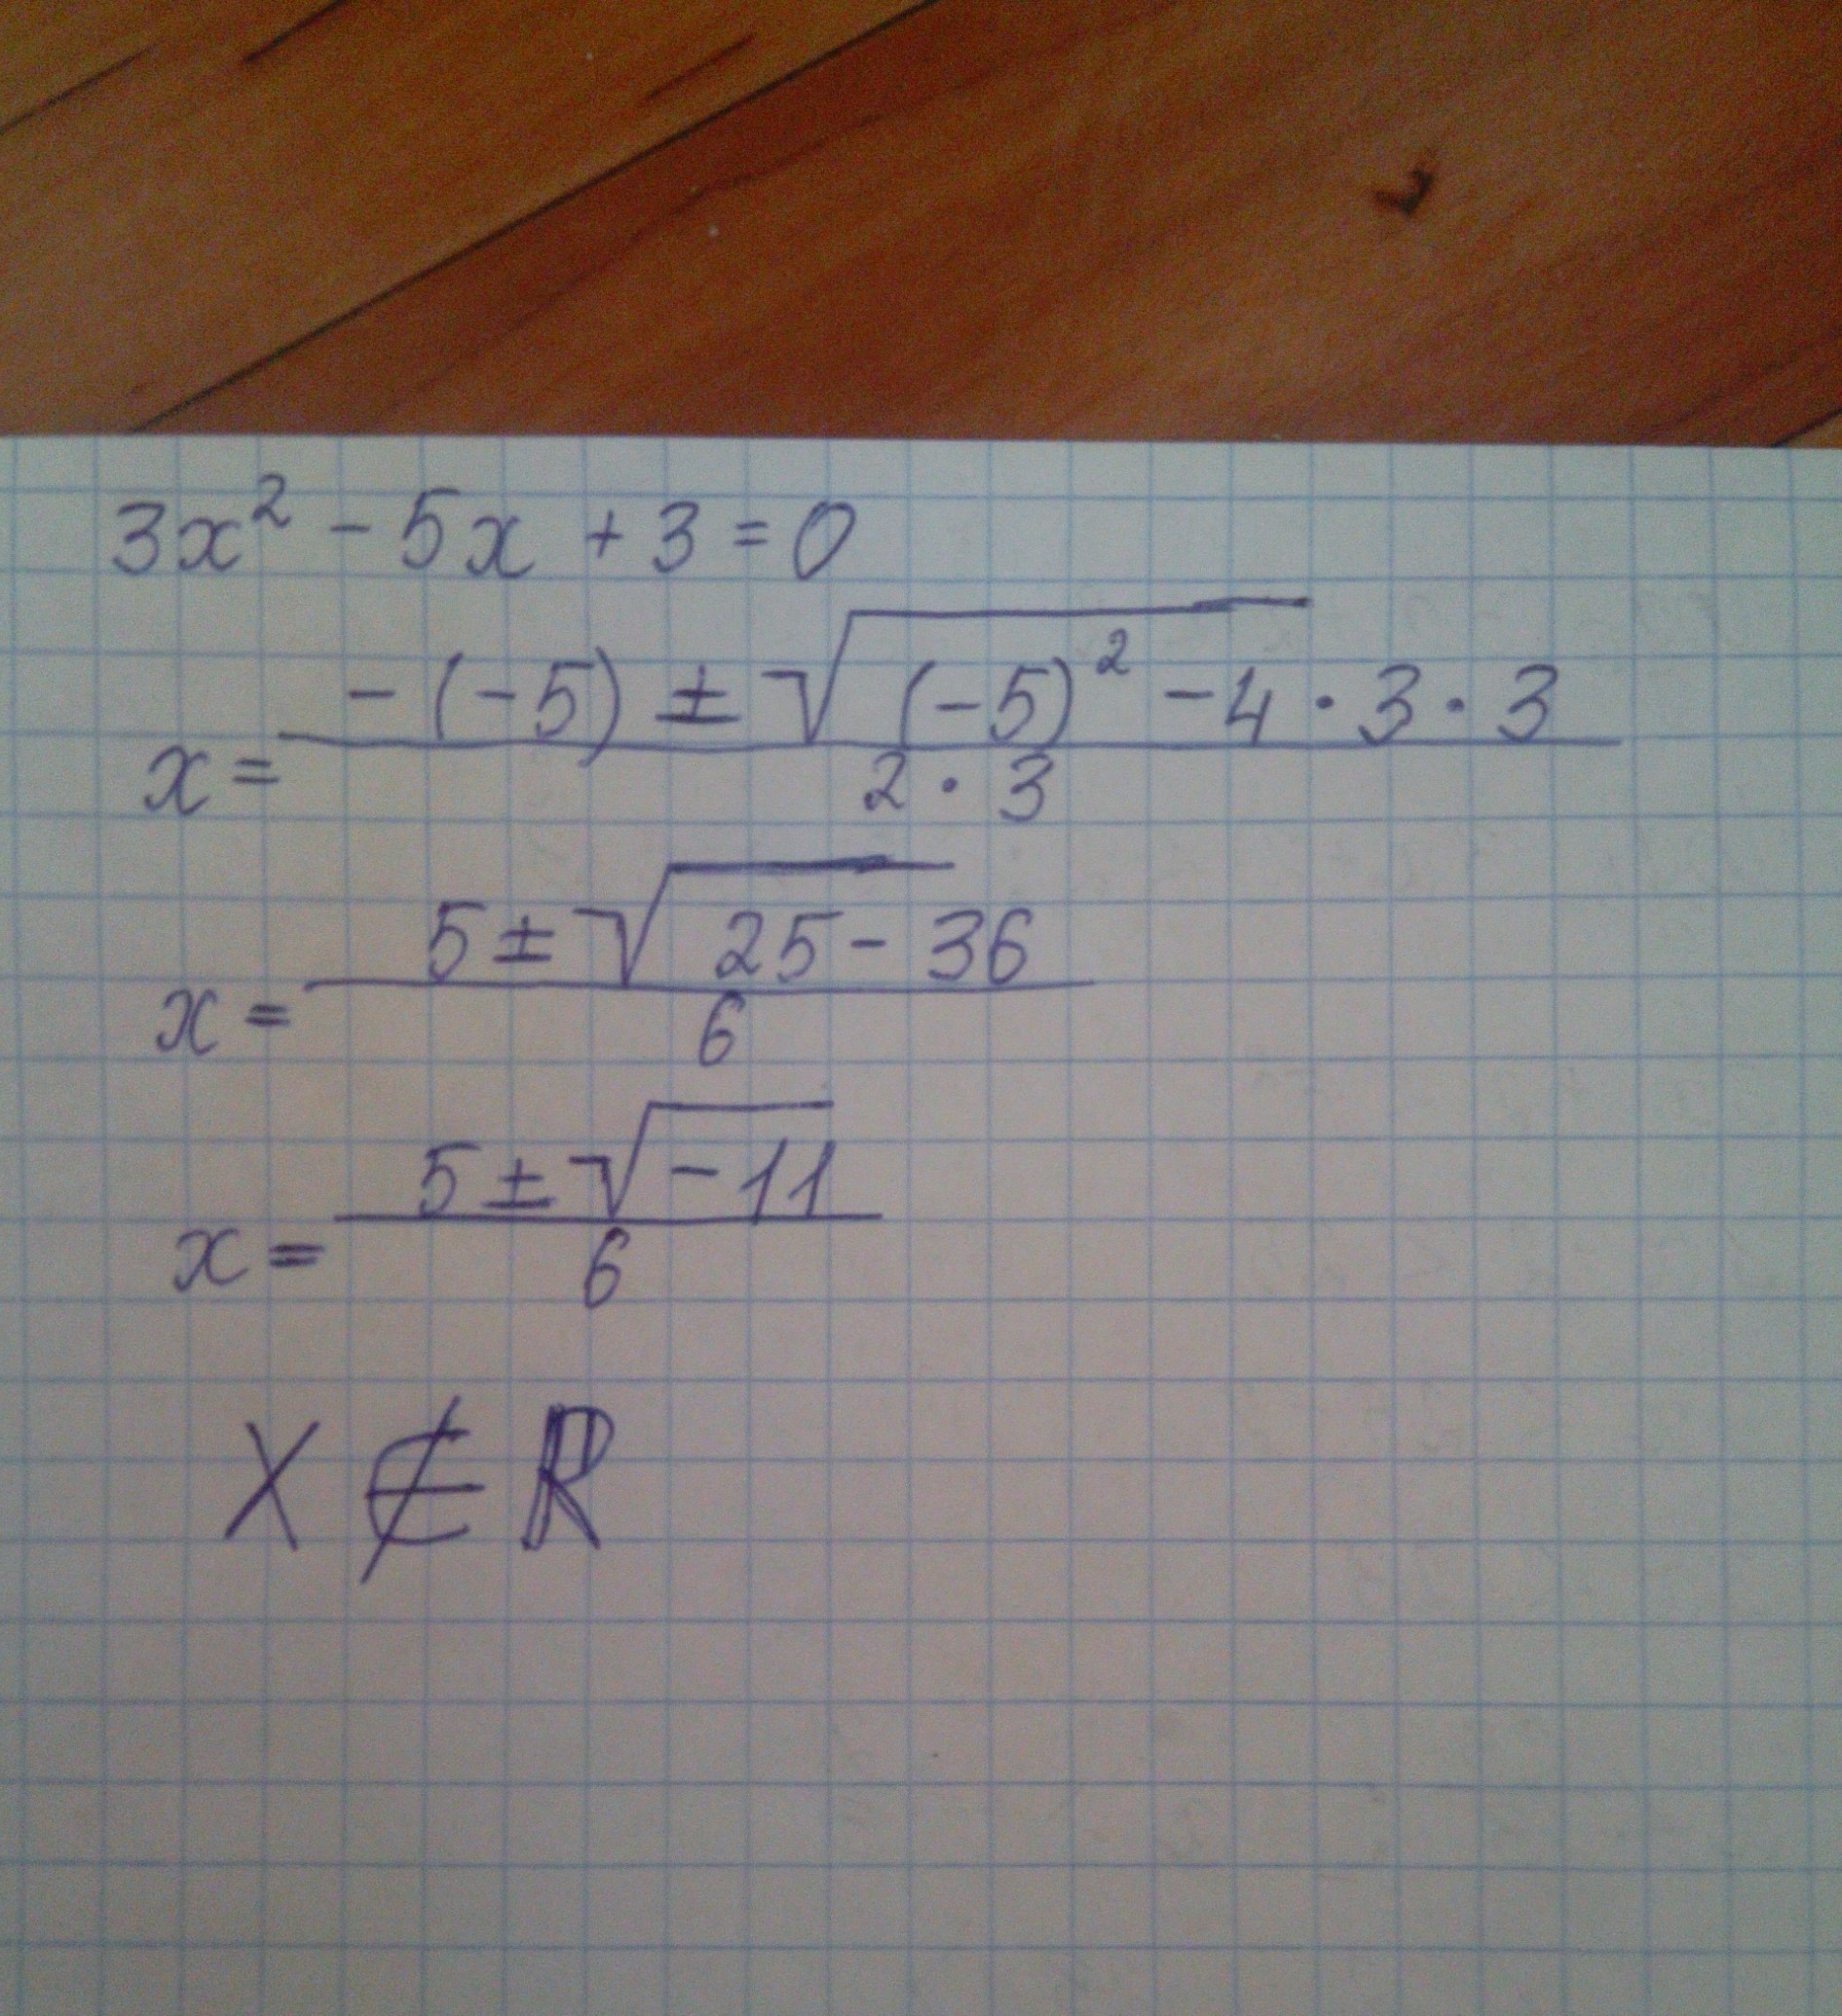 3x² - 5x + 3 = 0
x = (-(-5) ± √((-5)² - 4 · 3 · 3)) / (2 · 3)
x = (5 ± √(25 - 36)) / 6
x = (5 ± √(-11)) / 6
X ∉ ℝ